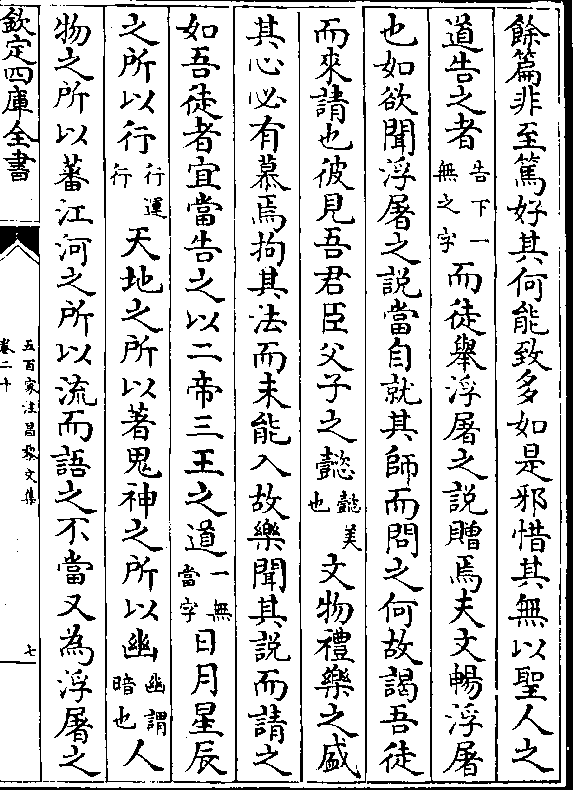 餘篇非至篤好其何能致多如是邪惜其無以聖人之
道告之者告下一無之字而徒舉浮屠之說贈焉夫文暢浮屠
也如欲聞浮屠之說當自就其師而問之何故謁吾徒
而來請也彼見吾君臣父子之懿懿美也文物禮樂之盛
其心必有慕焉拘其法而未能入故樂聞其說而請之
如吾徒者宜當告之以二帝三王之道一無當字日月星辰
之所以行行運行天地之所以著鬼神之所以幽幽謂暗也人
物之所以蕃江河之所以流而語之不當又為浮屠之
欽定四庫全書
五百家注昌黎文集
卷二十
七